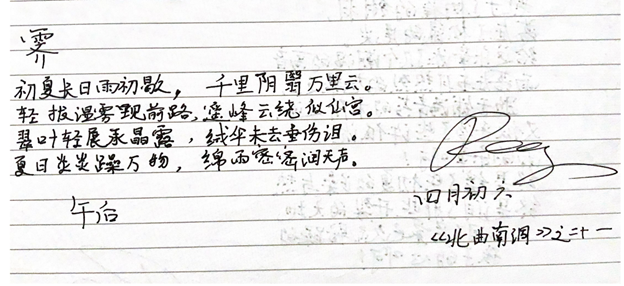 霁
初夏长日雨初歇，千里阴翳万里云。
轻拔湿雾觐前路，遥峰云绕似仙宫。
翠叶轻展承晶露，绒伞未去垂伤泪。
夏日炎炎躁万物，绵雨密密润无声。
午后
四月初六
《北曲南调》之二十一